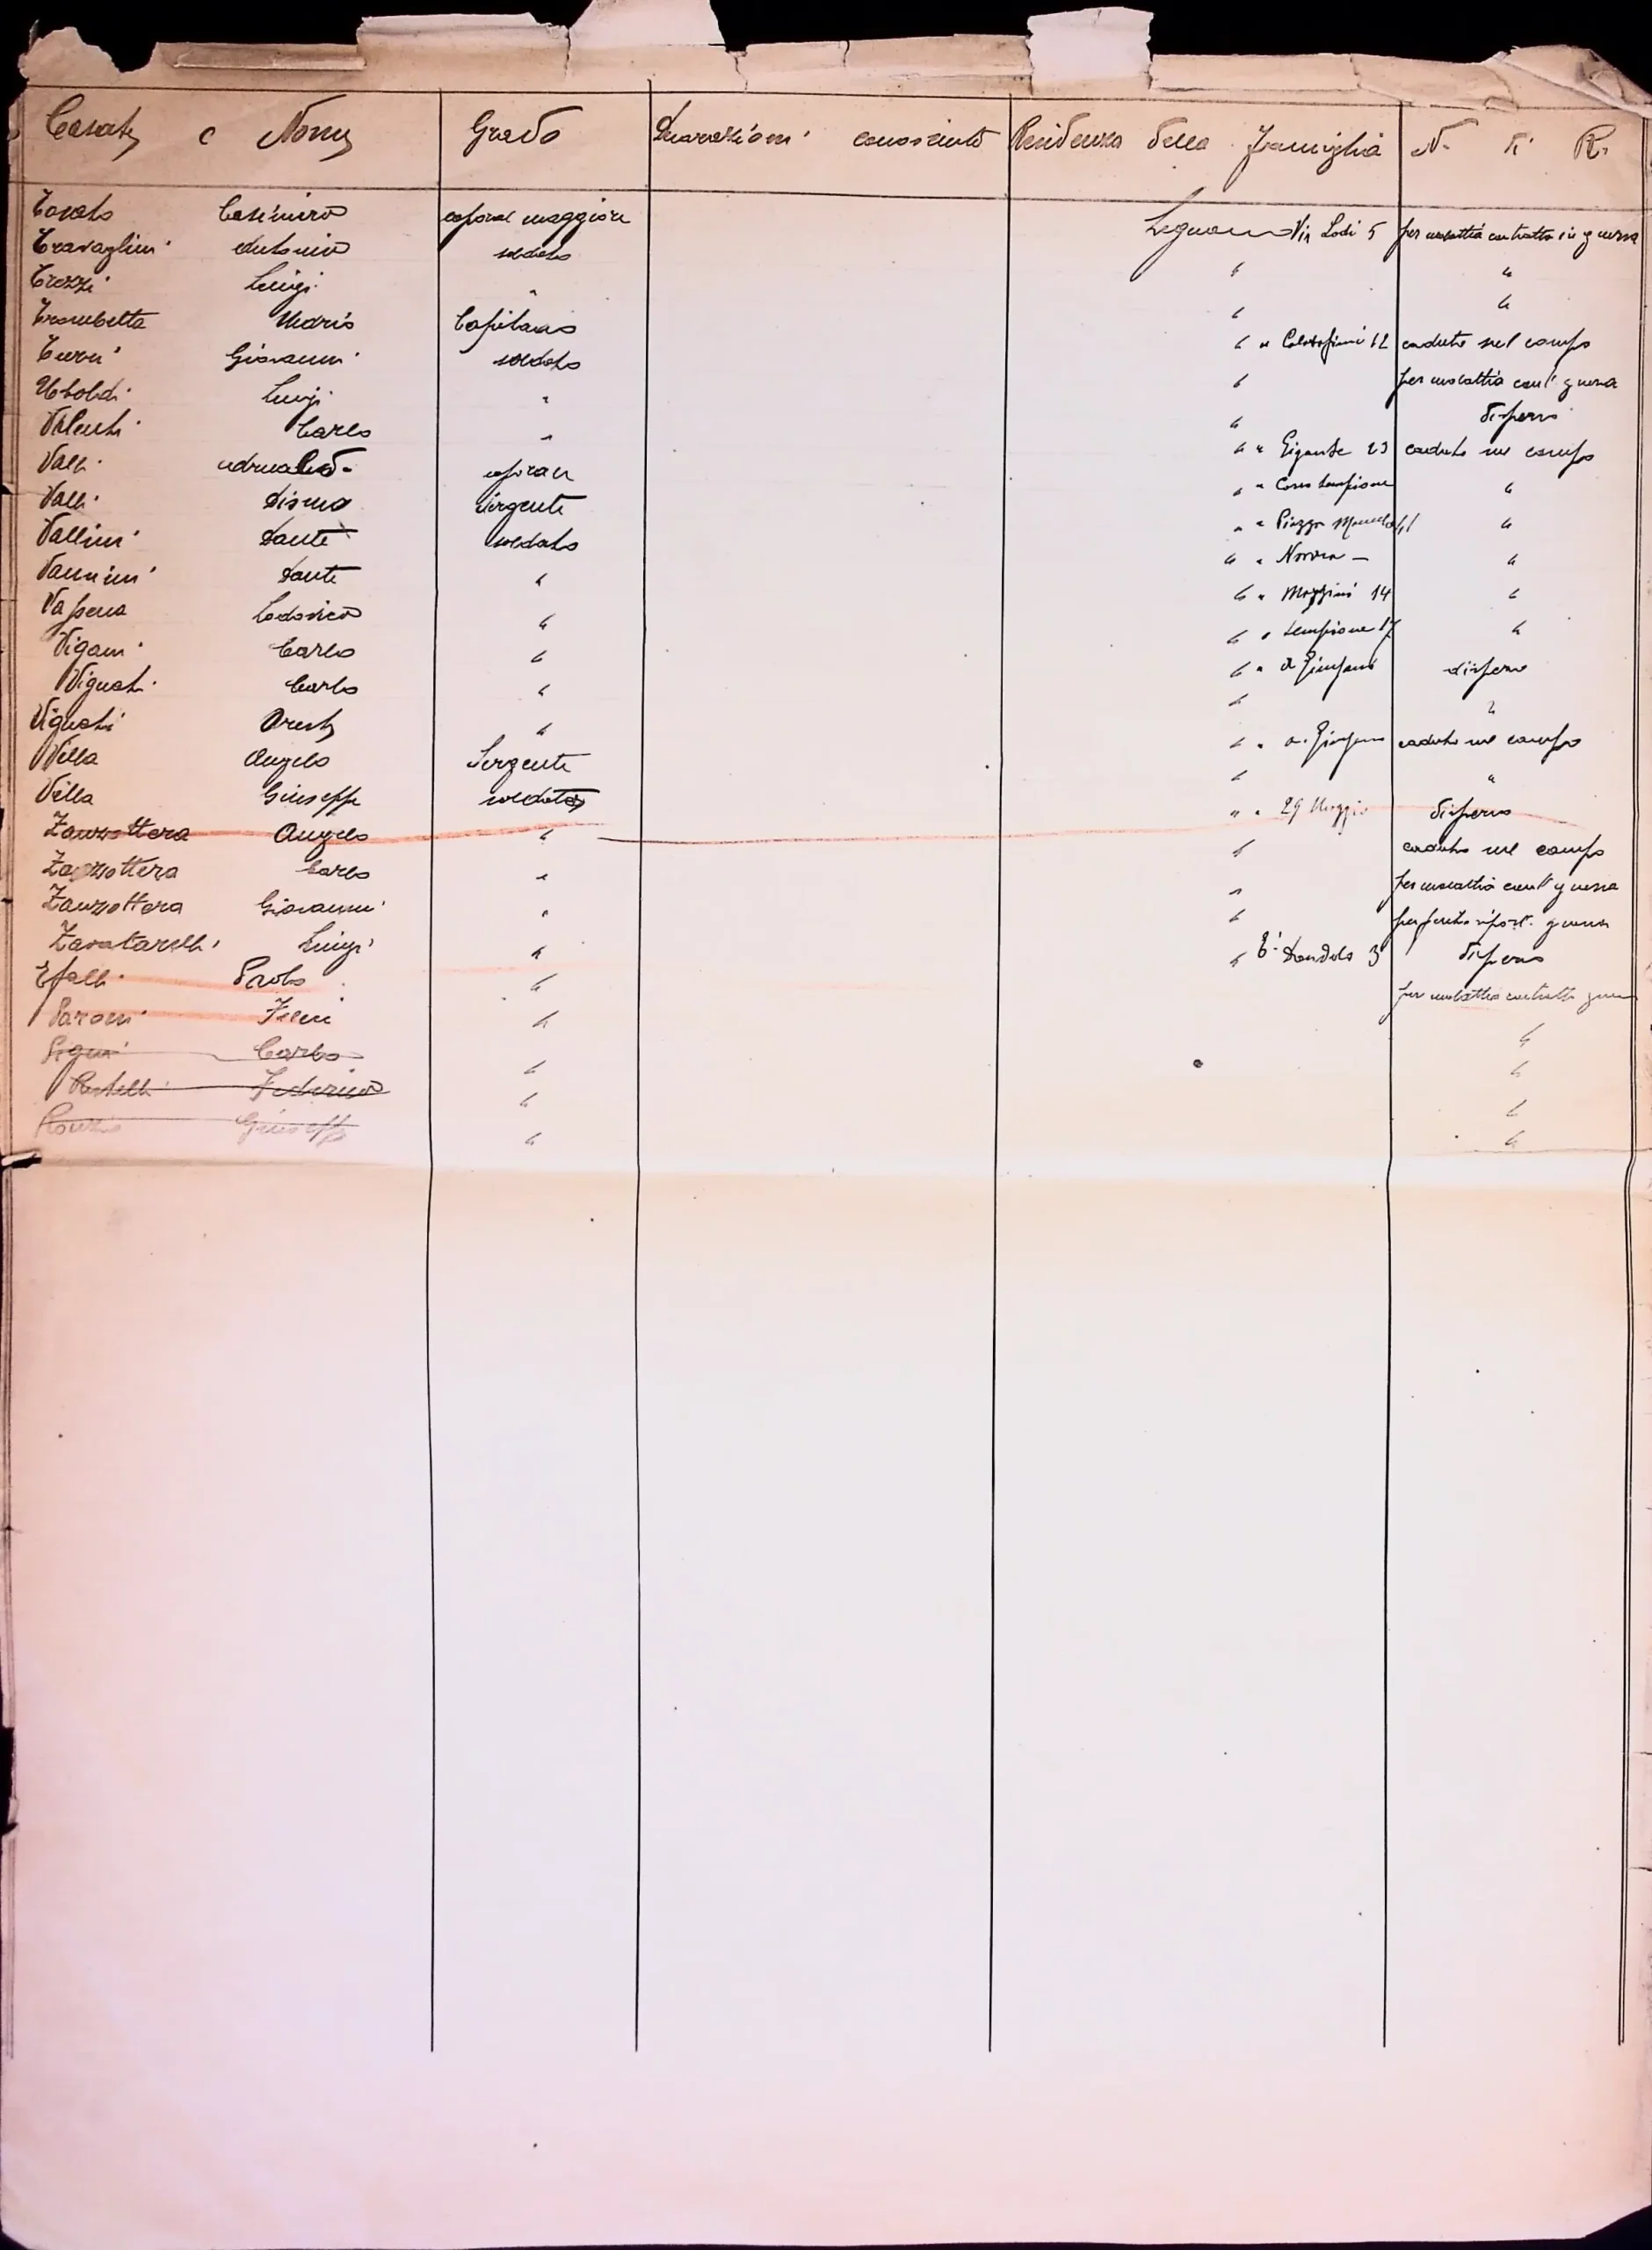 Casato e Nome Grado Decorazioni conosciute Residenza della Famiglia N. di R.
Tosato Casimiro caporal maggiore Legnano Via Lodi 5 per malattia contratta in guerra
Travaglini Antonio soldato " "
Trezzi Luigi " " "
Trombetta Mario Capitano " " Calatafimi 12 caduto nel campo
Turri Giovanni soldato " per malattia cont. guerra
Uboldi Luigi " " disperso
Valenti Carlo " " " Gigante 23 caduto nel campo
Valli caporale " " Corso Sempione "
Valli Dismo Sergente " " Piazza "
Vallini Dante soldato " " Novara — "
Vannini Dante " " " Mazzini 14 "
Vassena Lodovico " " " Sempione 17 "
Vigani Carlo " " " disperso
Vignati Carlo " " "
Vignati Oreste " " " caduto nel campo
Villa Angelo Sergente " "
Villa Giuseppe soldato " " 29 Maggio disperso
Zanzottera Angelo " " caduto nel campo
Zanzottera Carlo " " per malattia cont. guerra
Zanzottera Giovanni " " per ferite riport. guerra
Zavatarelli Luigi " " Dandolo 3 disperso
Paolo " per malattia contratta guerra
Paroni " "
Pigni Carlo " "
Restelli Federico " "
Giuseppe " "